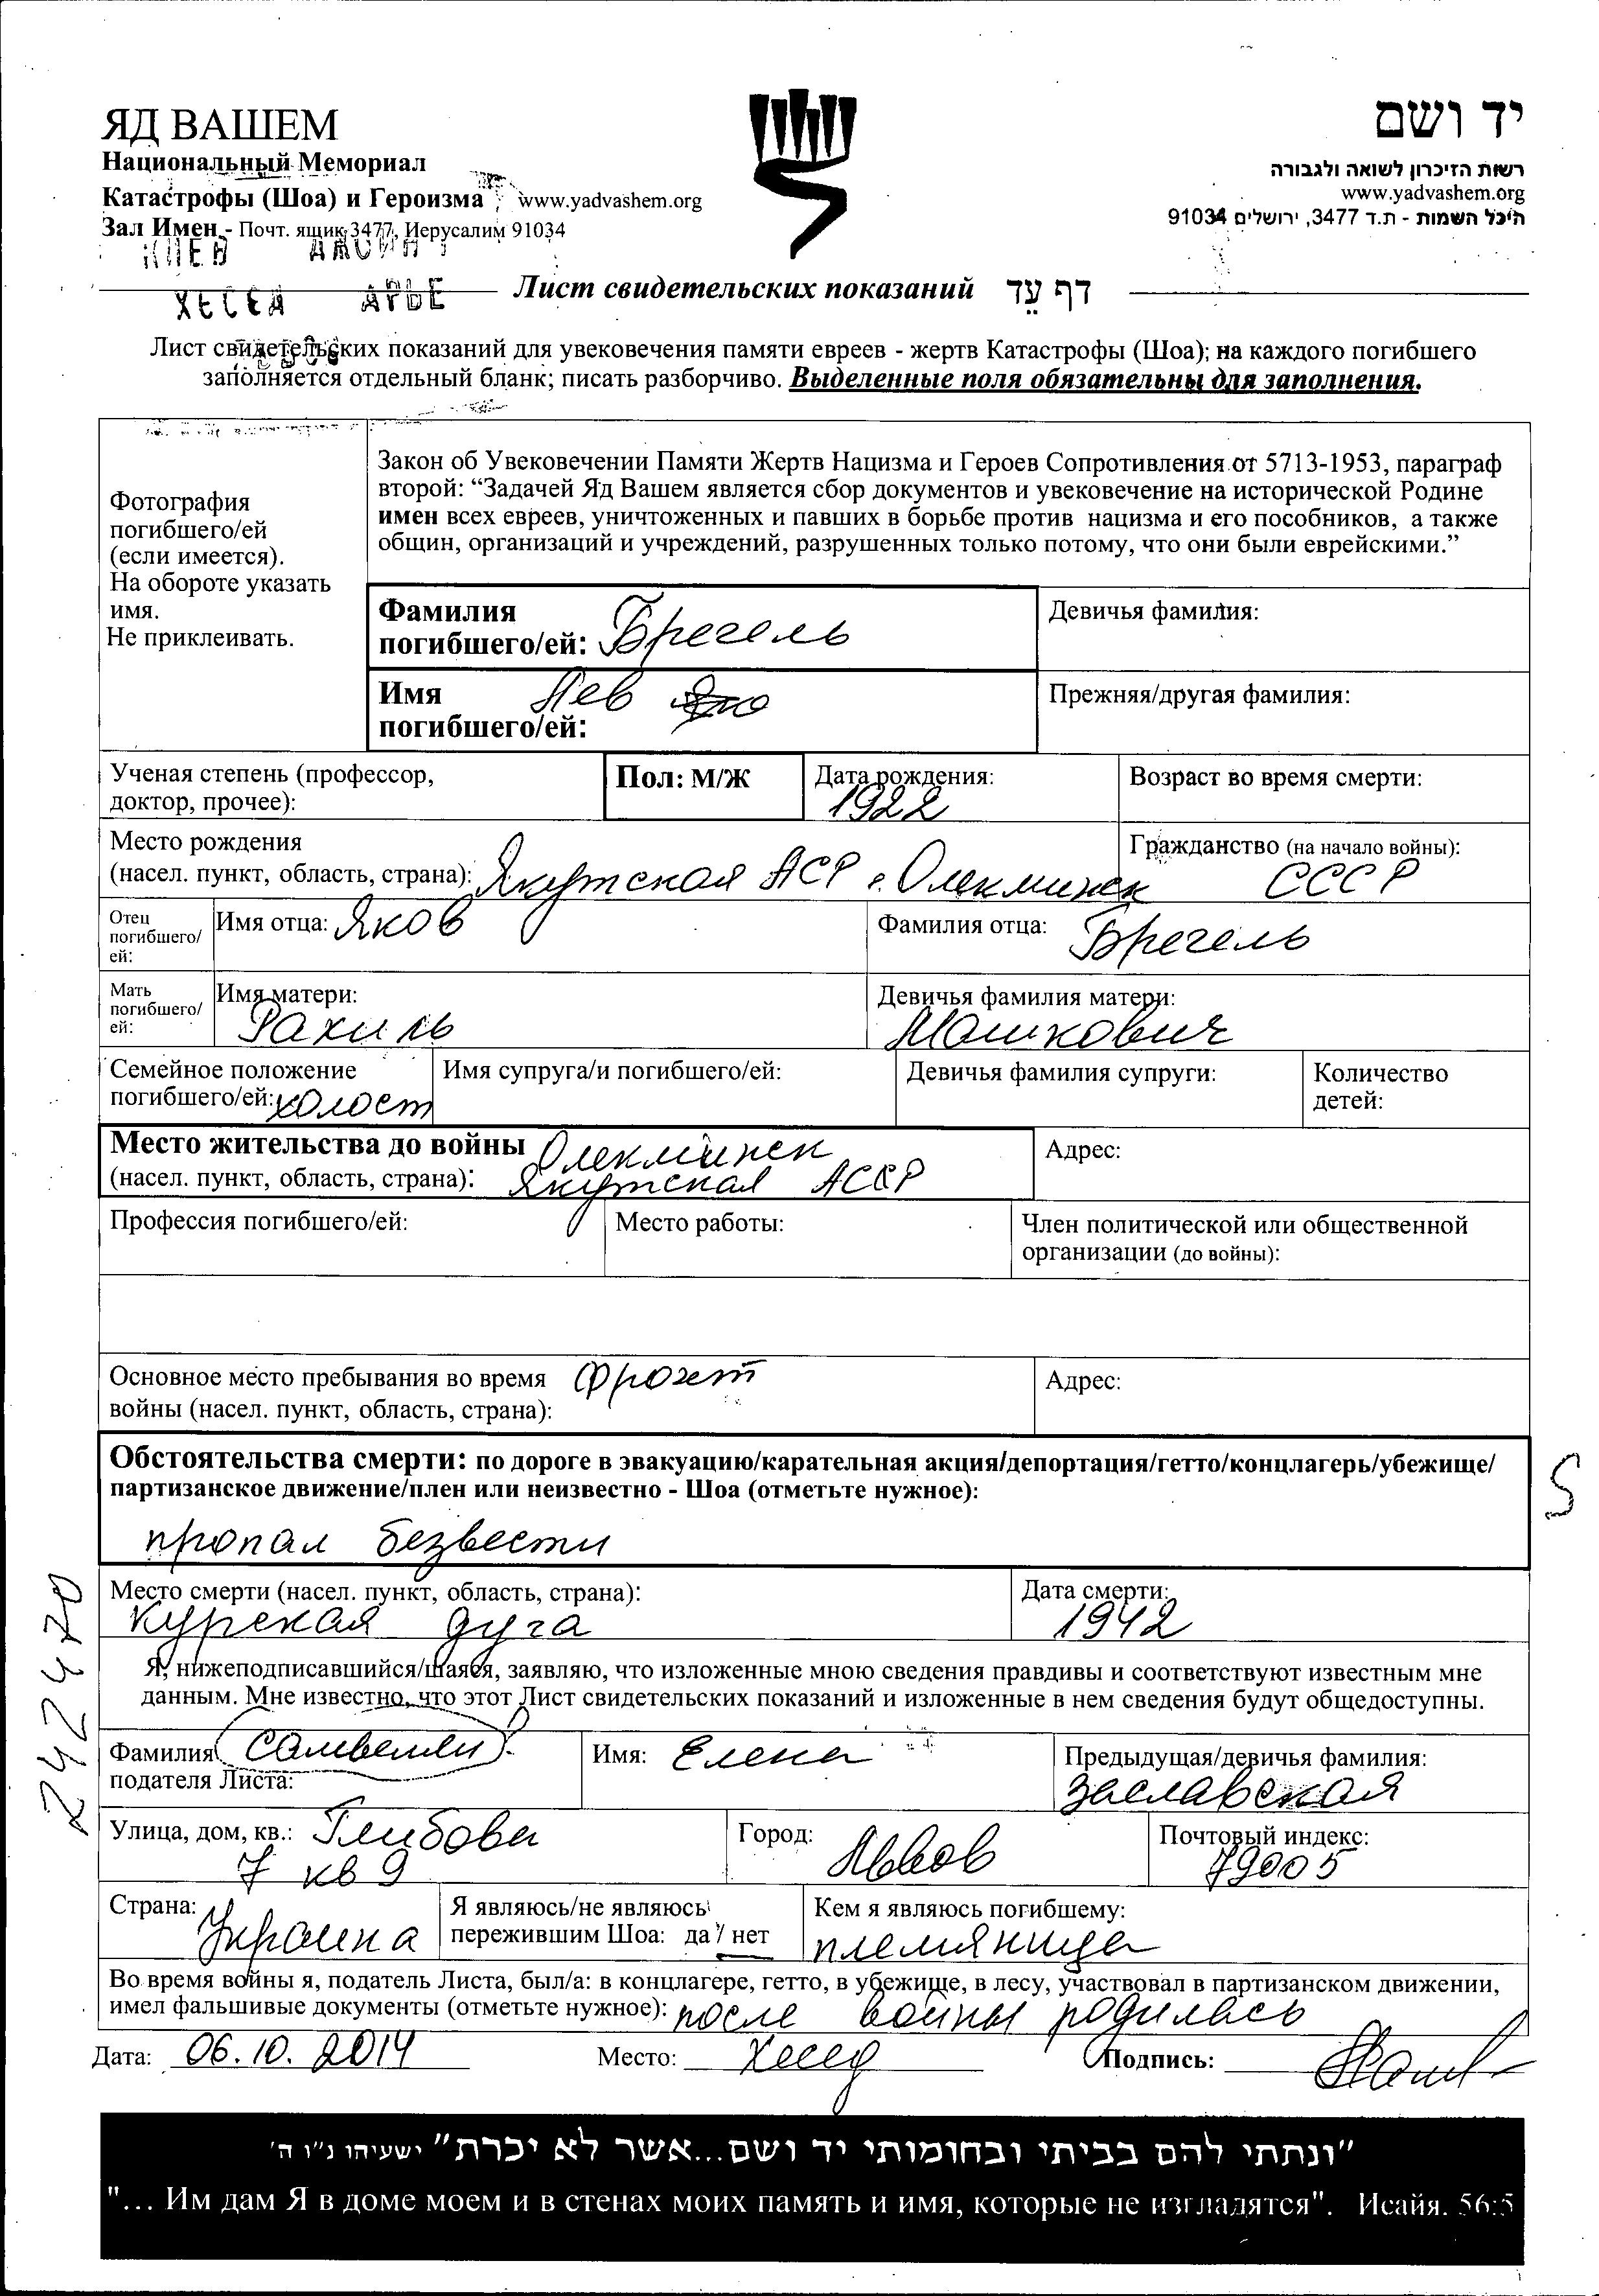 ЯД ВАШЕМ
Национальный Мемориал
Катастрофы (Шоа) и Героизма www.yadvashem.org
Зал Имен - Почт. ящик 3477, Иерусалим 91034
יד ושם
רשות הזיכרון לשואה ולגבורה
www.yadvashem.org
היכל השמות - ת.ד 3477, ירושלים 91034
ХЕСЕД АРЬЕ
Лист свидетельских показаний דף עֵד
Лист свидетельских показаний для увековечения памяти евреев - жертв Катастрофы (Шоа); на каждого погибшего
заполняется отдельный бланк; писать разборчиво. Выделенные поля обязательны для заполнения.
Фотография
погибшего/ей
(если имеется).
На обороте указать
имя.
Не приклеивать.
Закон об Увековечении Памяти Жертв Нацизма и Героев Сопротивления от 5713-1953, параграф
второй: “Задачей Яд Вашем является сбор документов и увековечение на исторической Родине
имен всех евреев, уничтоженных и павших в борьбе против нацизма и его пособников, а также
общин, организаций и учреждений, разрушенных только потому, что они были еврейскими.”
Фамилия
погибшего/ей: Брегель
Девичья фамилия:
Имя Лев
погибшего/ей:
Прежняя/другая фамилия:
Ученая степень (профессор,
доктор, прочее):
Пол: М/Ж
Дата рождения:
1922
Возраст во время смерти:
Место рождения
(насел. пункт, область, страна): Якутская АСР г. Олекминск
Гражданство (на начало войны):
СССР
Отец
погибшего/
ей:
Имя отца: Яков
Фамилия отца: Брегель
Мать
погибшего/
ей:
Имя матери:
Рахиль
Девичья фамилия матери:
Машкович
Семейное положение
погибшего/ей: холост
Имя супруга/и погибшего/ей:
Девичья фамилия супруги:
Количество
детей:
Место жительства до войны Олекминск
(насел. пункт, область, страна): Якутская АССР
Адрес:
Профессия погибшего/ей:
Место работы:
Член политической или общественной
организации (до войны):
Основное место пребывания во время фронт
войны (насел. пункт, область, страна):
Адрес:
Обстоятельства смерти: по дороге в эвакуацию/карательная акция/депортация/гетто/концлагерь/убежище/
партизанское движение/плен или неизвестно - Шоа (отметьте нужное):
пропал безвести
S
Место смерти (насел. пункт, область, страна):
Курская дуга
Дата смерти:
1942
242470
Я, нижеподписавшийся/шаяся, заявляю, что изложенные мною сведения правдивы и соответствуют известным мне
данным. Мне известно, что этот Лист свидетельских показаний и изложенные в нем сведения будут общедоступны.
Фамилия Самвелли
подателя Листа:
Имя: Елена
Предыдущая/девичья фамилия:
Заславская
Улица, дом, кв.: Глибова
7 кв 9
Город: Львов
Почтовый индекс:
79005
Страна: Украина
Я являюсь/не являюсь
пережившим Шоа: да / нет
Кем я являюсь погибшему:
племянница
Во время войны я, податель Листа, был/а: в концлагере, гетто, в убежище, в лесу, участвовал в партизанском движении,
имел фальшивые документы (отметьте нужное): после войны родилась
Дата: 06.10.2014 Место: Хесед Подпись:
"ונתתי להם בביתי ובחומותי יד ושם...אשר לא יכרת" ישעיהו נ"ו ה'
"... Им дам Я в доме моем и в стенах моих память и имя, которые не изгладятся". Исайя. 56:5